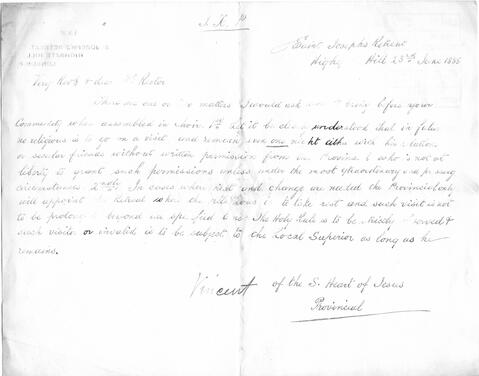 J. X. P.
Saint Joseph's Retreat
Highgate Hill 23rd June 1885
Very Revd & dear Fr Rector
There are one or two matters I would ask you to bring before your
Community when assembled in choir. 1st Let it be clearly understood that in future
no religious is to go on a visit and remain even one night either with his relations
or secular friends without written permission from the Provincial who is not at
liberty to grant such permissions unless under the most extraordinary and pressing
circumstances 2ndly. In cases where rest and change are needed the Provincial only
will appoint the Retreat where the religious is to take rest and such visit is not
to be prolonged beyond the specified time. The Holy Rule is to be strictly observed &
such visitor or invalid is to be subject to the Local Superior as long as he
remains.
Vincent of the S. Heart of Jesus
Provincial